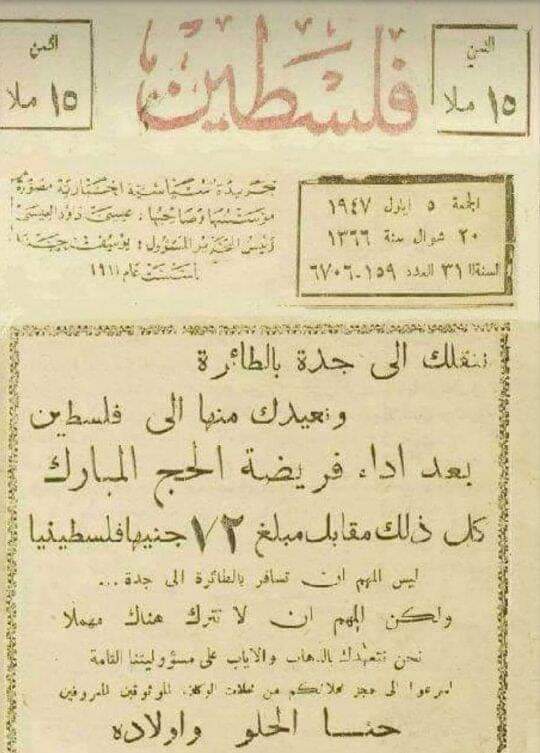 الثمن
١٥ ملا
فلسطين
الثمن
١٥ ملا
الجمعة ٥ ايلول ١٩٤٧
٢٠ شوال سنة ١٣٦٦
السنة ٣١ العدد ١٥٩-٦٧٠٦
جريدة سياسية اخبارية مصورة
مؤسسها وصاحبها: عيسى داود العيسى
رئيس التحرير المسؤول: يوسف حنا
تأسست عام ١٩١١
ننقلك الى جدة بالطائرة
ونعيدك منها الى فلسطين
بعد اداء فريضة الحج المبارك
كل ذلك مقابل مبلغ ٧٢ جنيها فلسطينيا
ليس المهم ان تسافر بالطائرة الى جدة ...
ولكن المهم ان لا تترك هناك مهملا
نحن نتعهدك بالذهاب والاياب على مسؤوليتنا التامة
اسرعوا الى حجز محلاتكم من محلات الوكلاء الموثوقين المعروفين
حنا الحلو واولاده